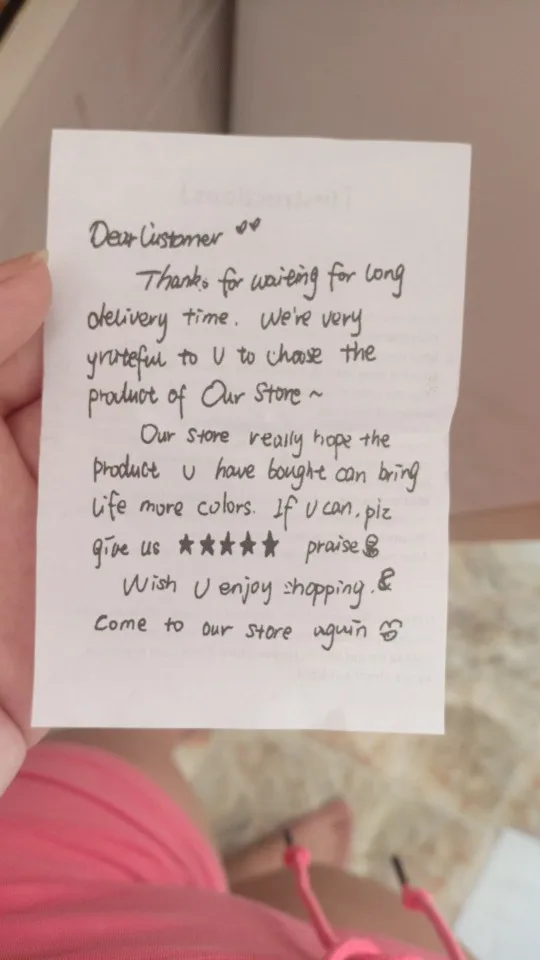 Dear Customer
Thanks for waiting for long
delivery time. We're very
grateful to U to choose the
product of Our Store ~
Our store really hope the
product u have bought can bring
life more colors. If U can, plz
give us ★★★★★ praise
Wish U enjoy shopping.
Come to our store again